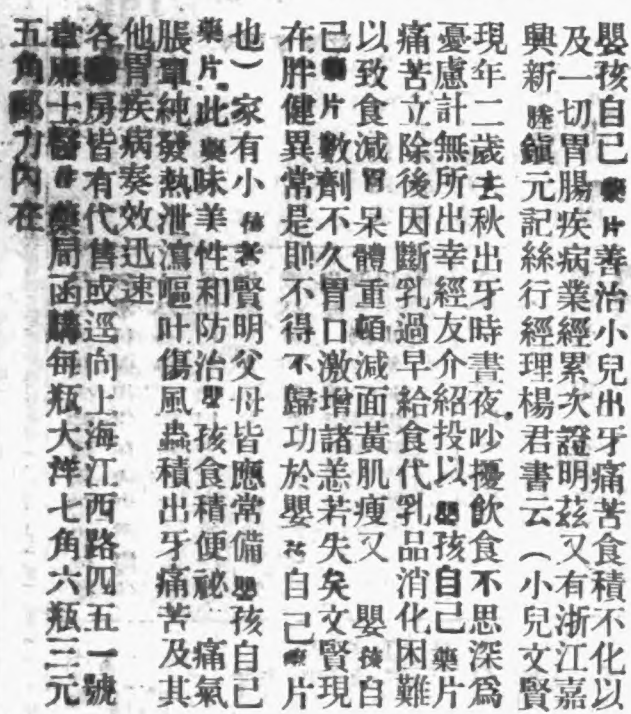 嬰孩自己藥片善治小兒出牙痛苦食積不化以
及一切胃腸疾病業經累次證明茲又有浙江嘉
興新塍鎭元記絲行經理楊君書云（小兒文賢
現年二歲去秋出牙時晝夜吵擾飲食不思深爲
憂慮計無所出幸經友介紹投以嬰孩自己藥片
痛苦立除後因斷乳過早給食代乳品消化困難
以致食減胃呆體重頓減面黃肌瘦又　嬰孩自
己藥片數劑不久胃口激增諸恙若失矣文賢現
在胖健異常是即不得不歸功於嬰孩自己藥片
也）家有小孩者賢明父母皆應常備嬰孩自己
藥片此藥味美性和防治嬰孩食積便祕　痛氣
脹單純發熱泄瀉嘔吐傷風蟲積出牙痛苦及其
他胃疾病奏效迅速
各藥房皆有代售或逕向上海江西路四五一號
韋廉士醫生藥局函購每瓶大洋七角六瓶三元
五角郵力內在